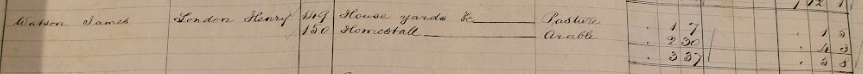 Watson James London Henry 149 House yards &c Pasture . 1 7
150 Homestall Arable . 2 30
. 3 37